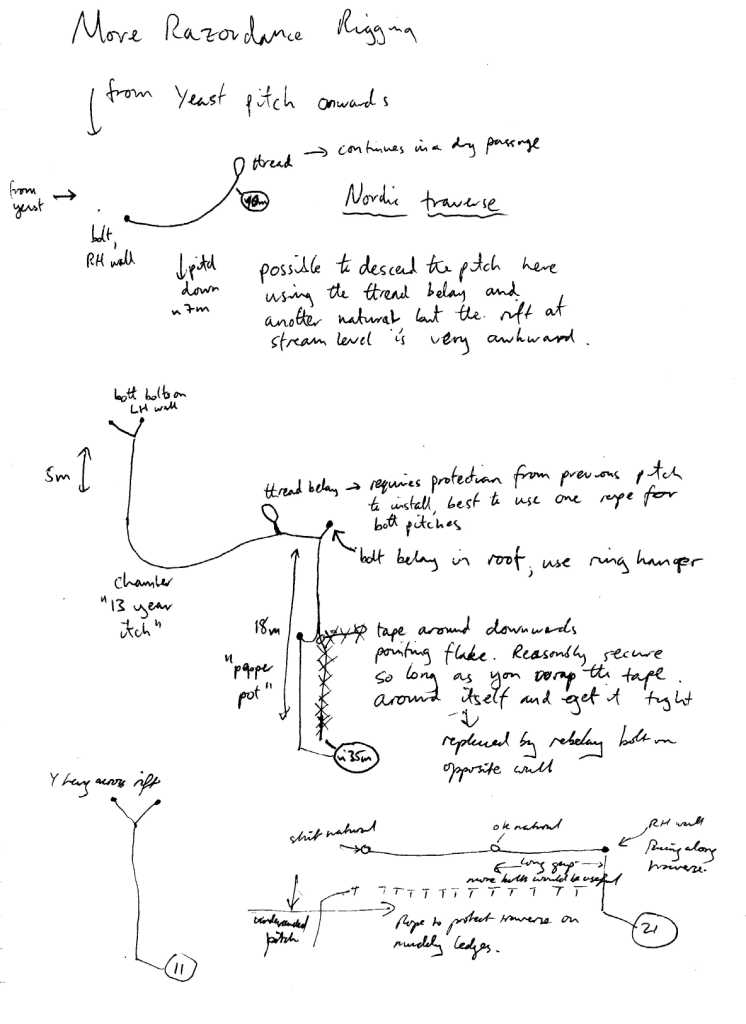 More Razordance Rigging
from Yeast pitch onwards
thread → continues in a dry passage
from
yeast →
Nordic traverse
bolt,
RH wall
↓ pitch
down
~7m
possible to descend the pitch here
using the thread belay and
another natural but the rift at
stream level is very awkward.
both bolts on
LH wall
5m
thread belay → requires protection from previous pitch
to install, best to use one rope for
both pitches
bolt belay in roof, use ring hanger
chamber
"13 year
itch"
18m
"pepper
pot"
tape around downwards
pointing flake. Reasonably secure
so long as you wrap the tape
around itself and get it tight
replaced by rebelay bolt on
opposite wall
~35m
Y hang across rift
11
shit natural
ok natural
RH wall
along
traverse.
long gap
more bolts would be useful
pitch
Rope to protect traverse on
muddy ledges.
21